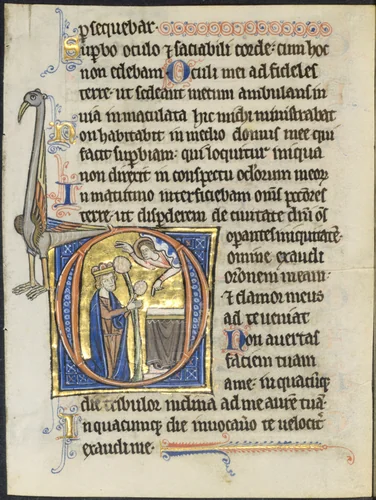 psequebar
Supbo oculo ⁊ saciabili corde: cum hoc
non edebam Oculi mei ad fideles
terre: ut sedeant mecum ambulans in
uia inmaculata hic michi ministrabat
Non habitabit in medio domus mee qui
facit supbiam: qui loquitur iniqua
non direxit in conspectu oclorum meor
In matutino interficiebam oms pctores
terre: ut disperderem de ciuitate dni os
opantes iniquitate
Domine exaudi
oronem meam:
⁊ clamor meus
ad te ueniat
Non auertas
faciem tuam
a me: in quacuq
die tribulor inclina ad me aure tua
In quacumq die inuocauo te uelocit
exaudi me